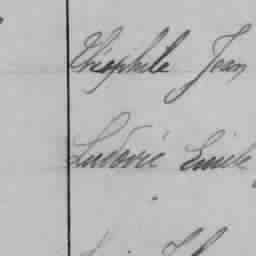 Théophile Jean
Ludovic Emile